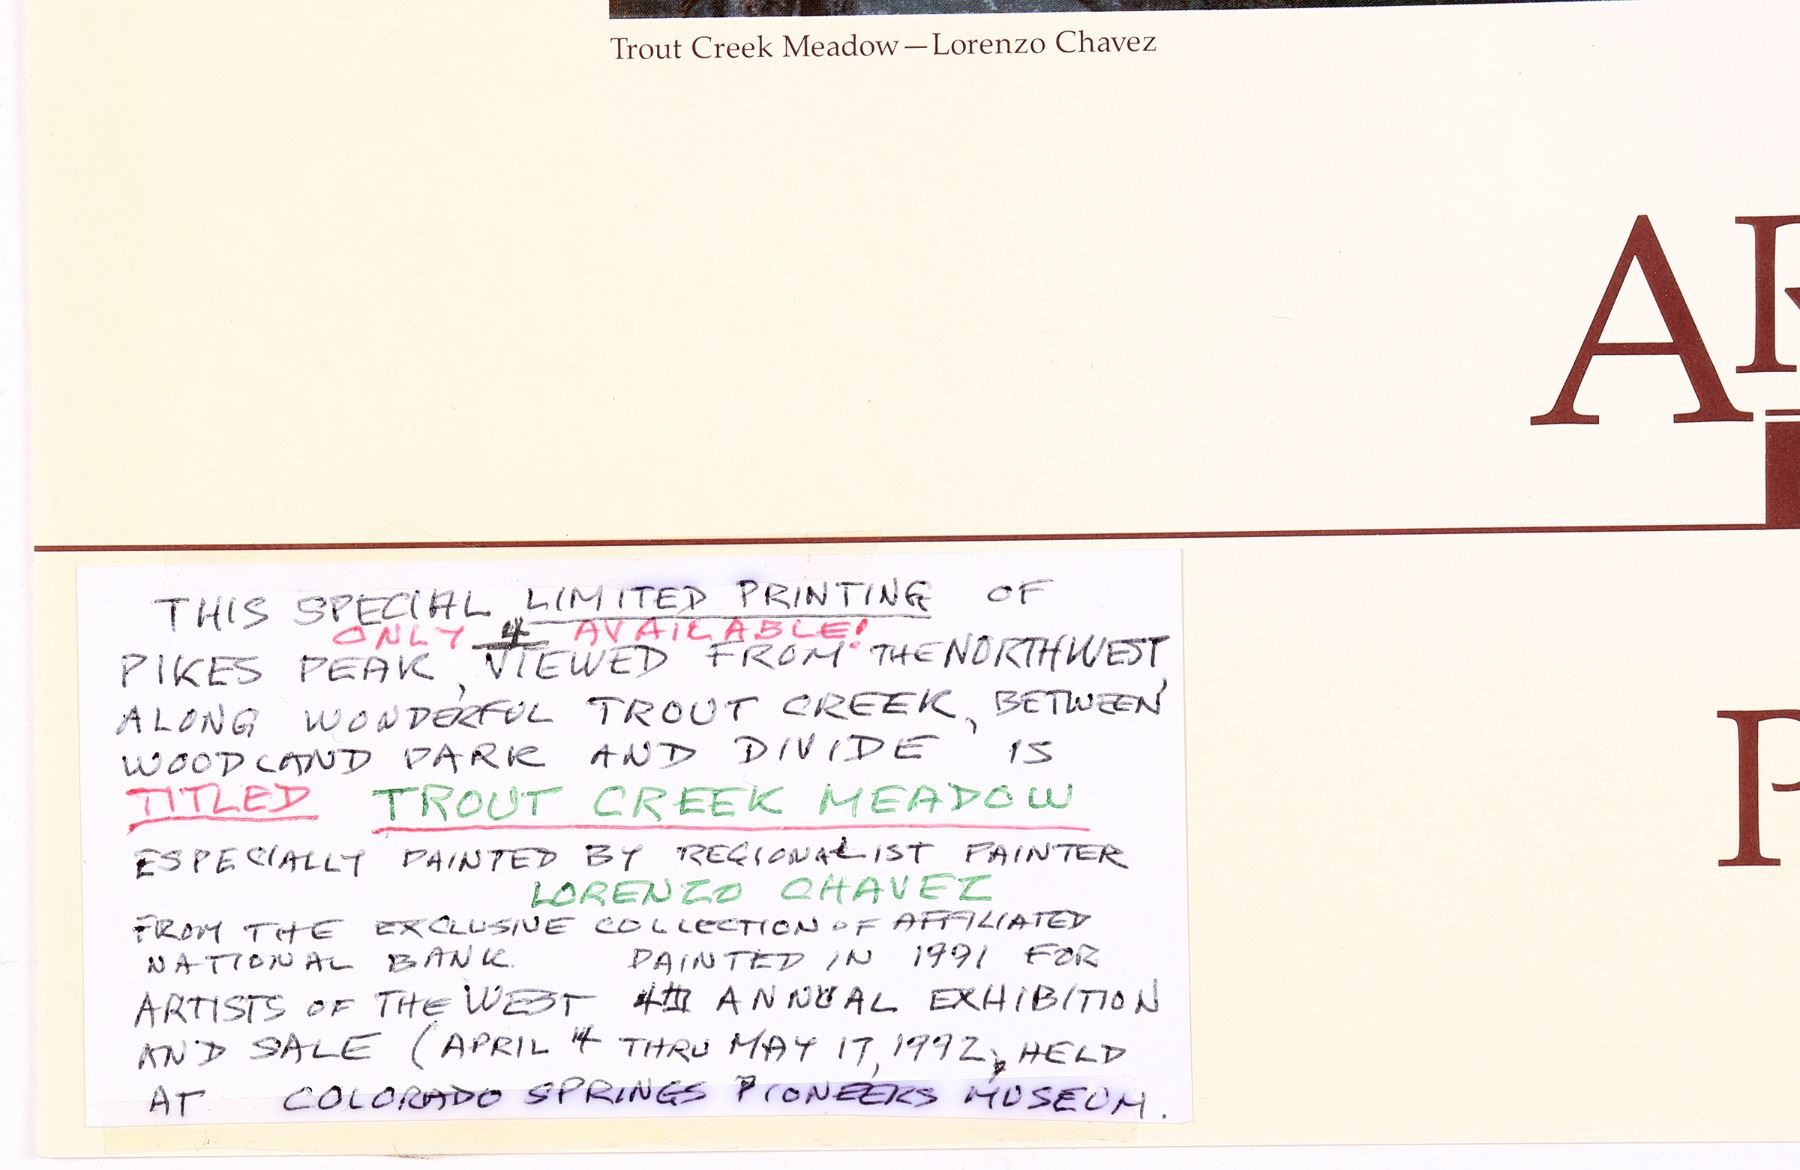 Trout Creek Meadow—Lorenzo Chavez
A
P
THIS SPECIAL LIMITED PRINTING OF
ONLY 4 AVAILABLE!
PIKES PEAK, VIEWED FROM THE NORTHWEST,
ALONG WONDERFUL TROUT CREEK, BETWEEN
WOODLAND PARK AND DIVIDE IS
TITLED TROUT CREEK MEADOW
ESPECIALLY PAINTED BY REGIONALIST PAINTER
LORENZO CHAVEZ
FROM THE EXCLUSIVE COLLECTION OF AFFILIATED
NATIONAL BANK. PAINTED IN 1991 FOR
ARTISTS OF THE WEST ANNUAL EXHIBITION
AND SALE (APRIL 14 THRU MAY 17, 1992, HELD
AT COLORADO SPRINGS PIONEERS MUSEUM.